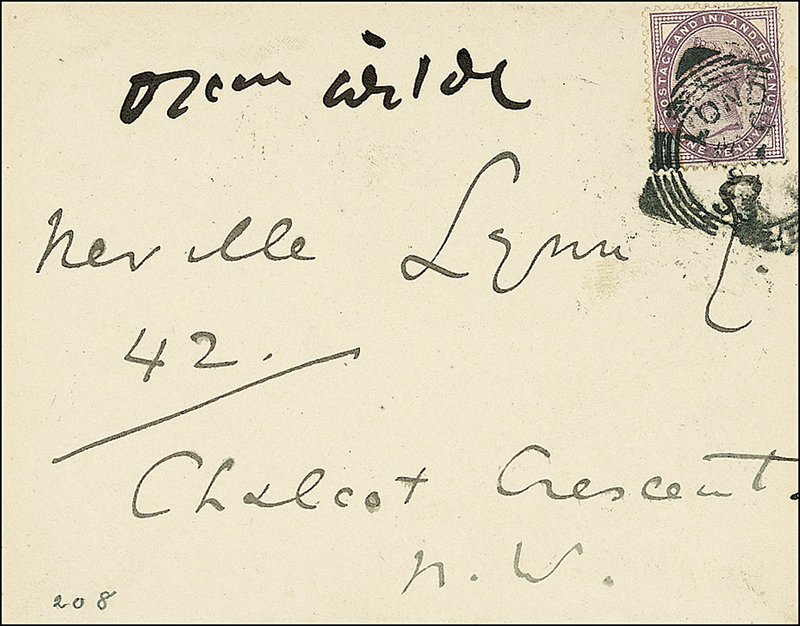 Oscar Wilde
POSTAGE AND INLAND REVENUE
ONE PENNY
LONDO
Neville Lynn
42.
Chalcot Crescent.
N. W.
208